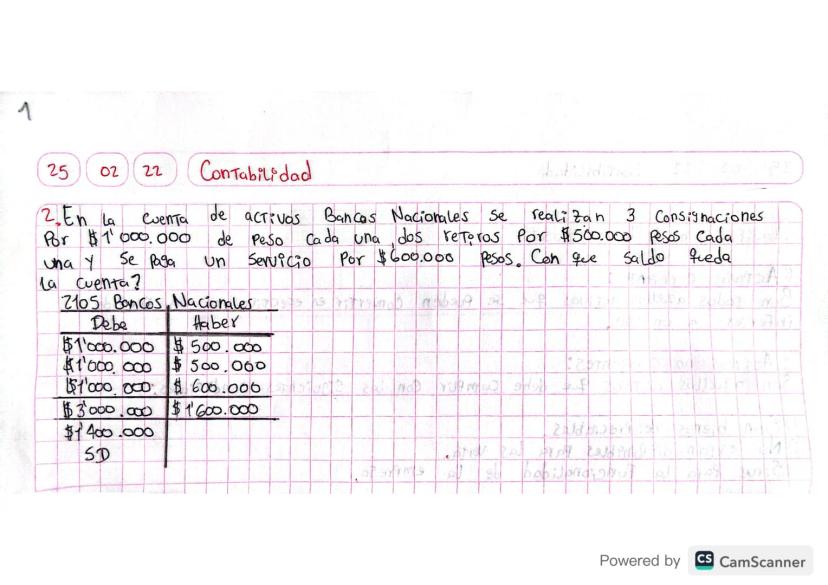 1
25 02 22 Contabilidad
2. En la cuenta de activos Bancos Nacionales se realizan 3 Consignaciones
Por $1'000.000 de peso cada una, dos retiros Por $500.000 Pesos cada
una y se paga un servicio Por $600.000 Pesos. Con que saldo queda
la cuenta?
2105 Bancos Nacionales
Debe Haber
$1'000.000 $500.000
$1'000.000 $500.000
$1'000.000 $600.000
$3'000.000 $1'600.000
$1'400.000
SD
Powered by CS CamScanner